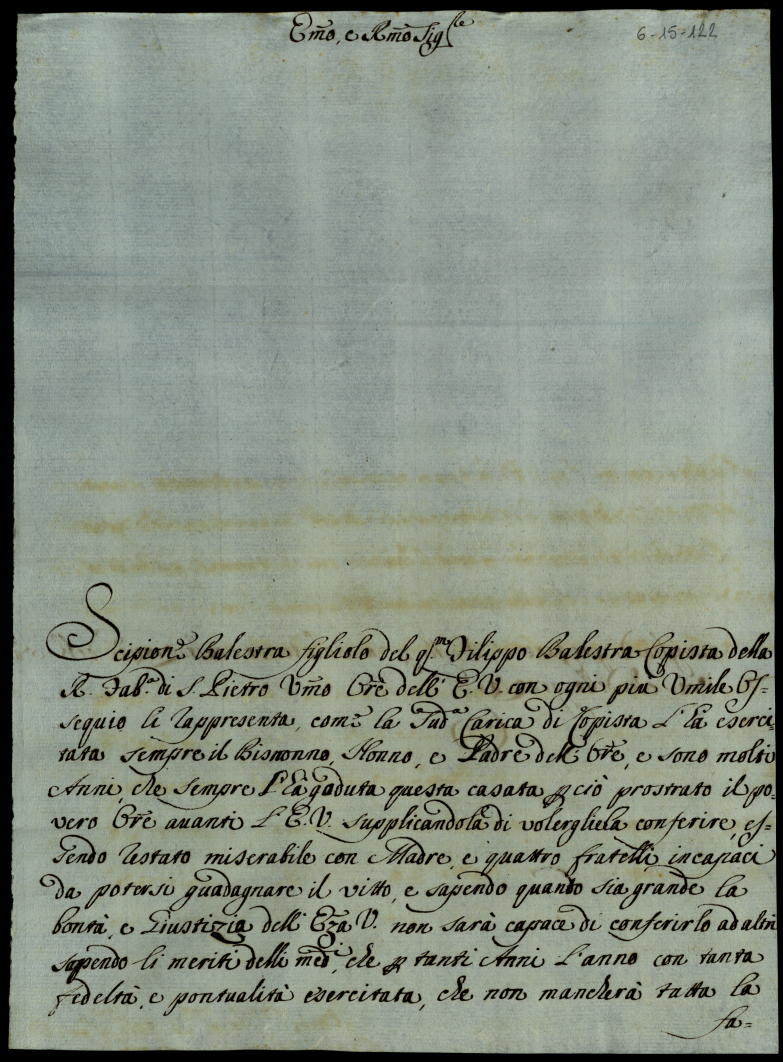 Em̃o, e Rm̃o Sig.re
6-15-122
Scipion.e Balestra figliolo del q.m Filippo Balestra Copista della
R. Fab.a di S. Pietro Um̃o Ore dell' E. V. con ogni più Umile Os=
sequio li rappresenta, com.e la Sud.a Carica di Copista l' hà eserci
tata sempre il Bisnonno, Nonno, e Padre dell' Ore, e sono molti
Anni, che sempre l' hà gaduta questa casata p ciò prostrato il po=
vero Ore avanti l' E. V. supplicandola di volergliela conferire, es=
sendo restato miserabile con Madre, e quattro fratelli, incapaci
da potersi guadagnare il vitto, e sapendo quando sia grande la
bontà, e Giustizia dell' Ecza V. non sarà capace di conferirlo ad altri
sapendo li meriti delli med.i, che p tanti Anni l'anno con tanta
fedeltà, e pontualità esercitata, che non mancherà tutta la
fa=